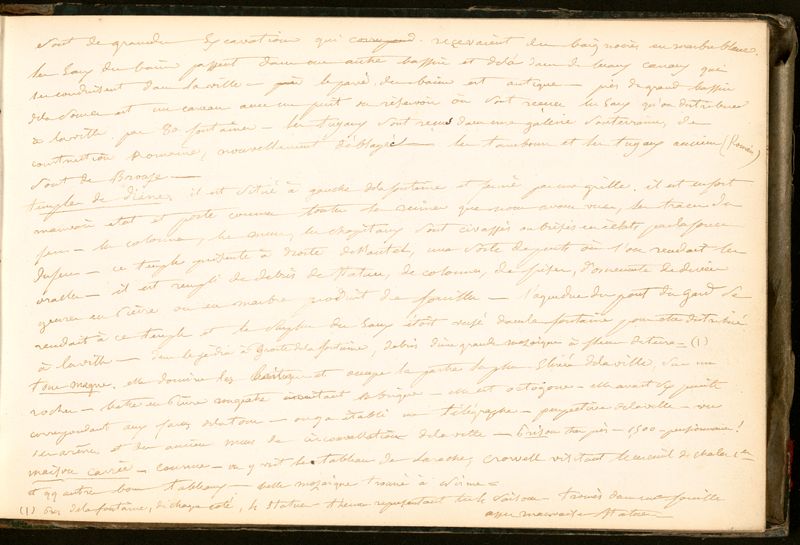 sont de grandes excavations qui reçevaient des bais noirs en marbre blanc.
les Eaux du bain passent dans un autre bassin et delà dans de beaux canaux qui
se conduisent dans la ville — le pavé du bain est antique — près du grand bassin
de la source est un caveau avec un petit réservoir où sont reçues les Eaux qu'on distribue
à la ville par 80 fontaines — les tuyaux sont reçus dans une galerie souterraine, de
construction Romaine, nouvellement déblayée — les tambours et les tuyaux anciens (Romains)
sont de Bronze —
temple de Diane, il est situé à gauche de la fontaine et fermé par une grille. il est en fort
mauvais état et porte comme toutes les ruines que nous avons vues, les traces du
feu — les colonnes, les murs, les chapitaux sont crevassés ou brisés en éclats par la force
du feu — ce temple présente à droite de l'autel, une sorte de puits où l'on rendait les
oracles — il est rempli de débris de statues, de colonnes, de frises, d'ornements de divers
genres en pierre ou en marbre produit des fouilles — l'aqueduc du pont du Gard se
rendait à ce temple et le surplus des Eaux était versé dans la fontaine pour être distribué
à la ville — dans le jardin à droite de la fontaine, débris d'une grande mosaïque à fleur de terre — (1)
tour magne. elle domine les et occupe la partie la plus élevée de la ville, sur un
rocher — bâtie en pierre imitant la brique — elle est octogone — elle avait des
correspondant aux faces de la tour — on y a établi un télégraphe — perspective de la ville — vue
des arènes et des anciens murs de circonvallation de la ville — prison très près — 1500 pensionnaires!
maison carrée — connue — on y voit le tableau de Laroche, Cromwell visitant le cercueil de Charles 1er
et qq autres bons tableaux — belle mosaïque trouvée à Nîmes =
(1) près de la fontaine, de chaque côté, les statues termes représentant les 4 saisons trouvés dans une fouille
assez mauvaises statues —